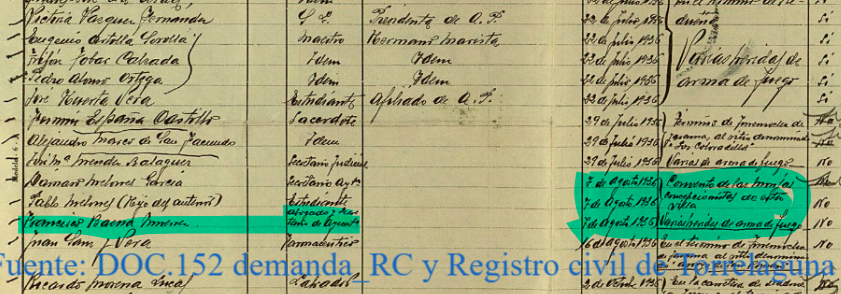 Victoria Vazquez Fernandez S. L. Presidenta de A. P. 22 de Julio 1936 dueña Si
Eugenio Artolla Sorolla Maestro Hermano Marista 22 de Julio 1936 Varias heridas de Si
Trifón Tobar Calzada Idem Idem 22 de Julio 1936 arma de fuego Si
Pedro Alonso Ortega Idem Idem 22 de Julio 1936 Si
José Huerta Vera Estudiante Afiliado de A. P. 22 de Julio 1936 Si
Fermin España Castillo Sacerdote 29 de Julio 1936 Término de
Alejandro Mares de San Facundo Idem 29 de Julio 1936 Jarama, al sitio denominado
José Mª Mendez Balaguer Secretario Judicial 29 de Julio 1936 Varias de arma de fuego No
Damaso Melones Garcia Secretario Ayto 7 de Agosto 1936 Convento de las monjas
Pablo Melones (Hijo del anterior) Estudiante 7 de Agosto 1936 concepcionistas de esta villa No
Francisco Baena Jimenez Abogado y Secretario de Ayunto 7 de Agosto 1936 Varias heridas de arma de fuego No
Juan Sanz y Vera Farmacéutico 16 de Agosto 1936 En el término de No
Fuente: DOC.152 demanda_RC y Registro civil de Torrelaguna
Ricardo Morena Lucas Labrador 2 de 1936 En la carretera de